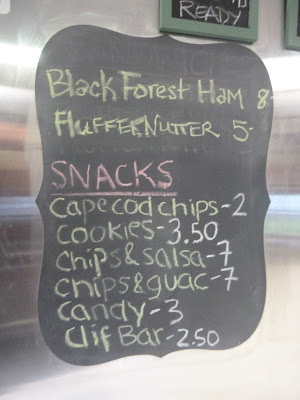 READY
Black Forest Ham 8-
FLUFFERNUTTER 5-
SNACKS
Cape cod chips-2
cookies-3.50
chips & salsa-7
chips & guac-7
candy-3
clif Bar-2.50